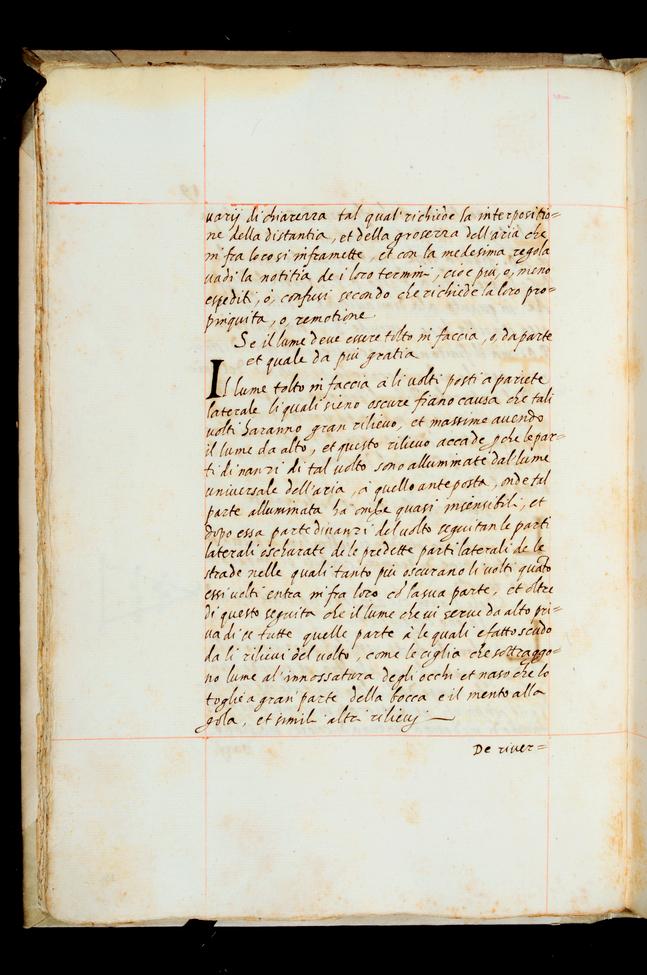 varij di chiarezza tal qual' richiede la interpositio=
ne della distantia, et della grosezza dell'aria che
in fra loco si inframette, et con la medesima regola
vadi la notitia de i loro termini, cioè più, o, meno
espediti, o, confusi secondo che richiede la loro pro=
pinquita, o, remotione.
Se il lume deve essere tolto in faccia, o, da parte
et quale da più gratia
Il lume tolto in faccia à li volti posti a pariete
laterale li quali sieno oscure fiano causa che tali
volti haranno gran rilievo, et massime avendo
il lume da alto, et questo rilievo accade perche le par=
ti dinanzi di tal volto sono alluminate dal lume
universale dell'aria, à quello anteposta, onde tal
parte alluminata ha ombre quasi insensibili, et
dopo essa parte dinanzi del volto seguitan le parti
laterali oschurate de le predette parti laterali de le
strade nelle quali tanto più oscurano li volti quanto
essi volti entra in fra loro cō la sua parte, et oltre
di questo seguita che il lume che vi serve da alto pri=
va di se tutte quelle parte à le quali e fatto scudo
da li rilievi del volto, come le ciglia che sottraggo=
no lume al' innossatura degli occhi et naso che lo
toglie a gran' parte della bocca e il mento alla
gola, et simili altri rilievj
De river=